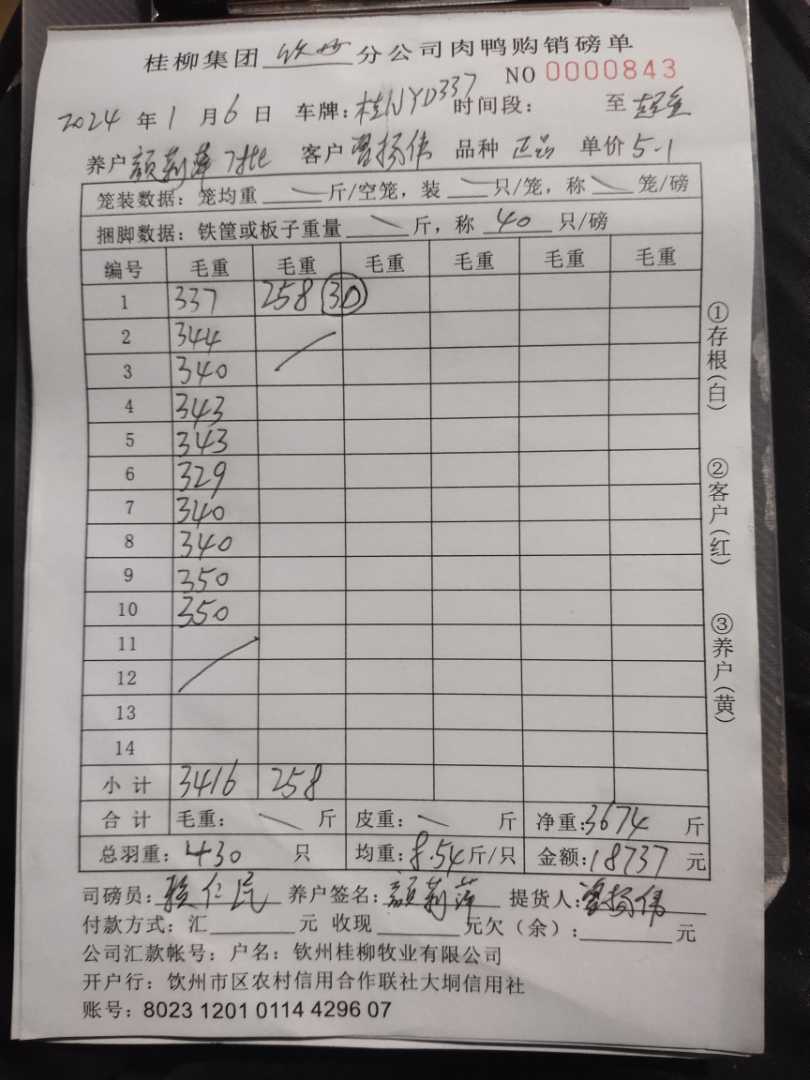 桂柳集团 钦州 分公司肉鸭购销磅单
NO 0000843
2024 年 1 月 6 日 车牌：桂NYD337 时间段： 至
养户 颜莉萍 客户 曾扬伟 品种 正品 单价 5-1
笼装数据：笼均重 斤/空笼，装 只/笼，称 笼/磅
捆脚数据：铁筐或板子重量 斤，称 40 只/磅
编号 毛重 毛重 毛重 毛重 毛重 毛重
1 337 258 30
2 344
3 340
4 343
5 343
6 329
7 340
8 340
9 350
10 350
11
12
13
14
小计 3416 258
合计 毛重： 斤 皮重： 斤 净重：3674 斤
总羽重：430 只 均重：8.54 斤/只 金额：18737 元
司磅员：赖仁民 养户签名：颜莉萍 提货人：曾扬伟
付款方式：汇 元 收现 元欠（余）： 元
公司汇款帐号：户名：钦州桂柳牧业有限公司
开户行：钦州市区农村信用合作联社大垌信用社
账号：8023 1201 0114 4296 07
①存根（白）
②客户（红）
③养户（黄）